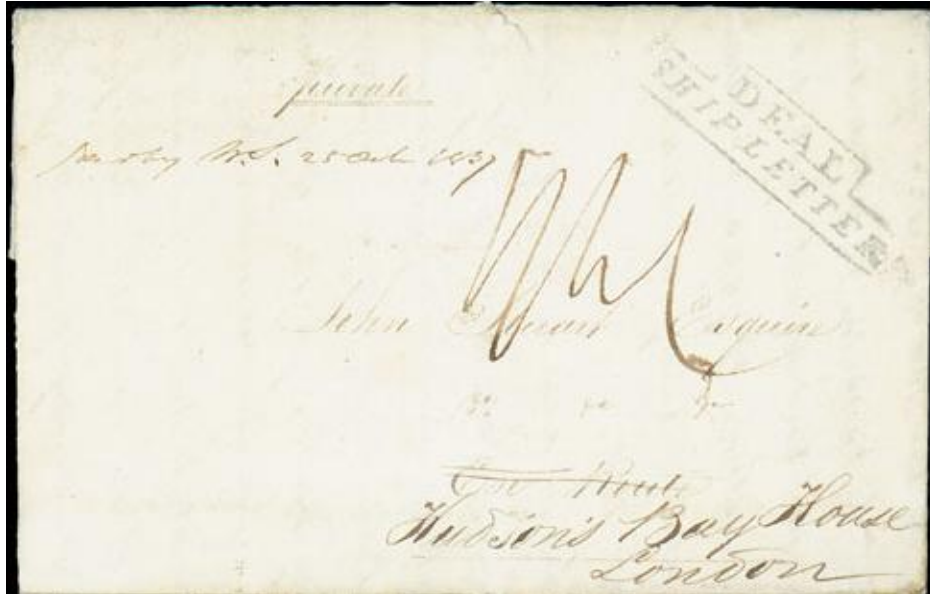 private
DEAL
SHIP LETTER
W.S. 25 Oct 1837
John Stuart Esquire
En Route
Hudson's Bay House
London